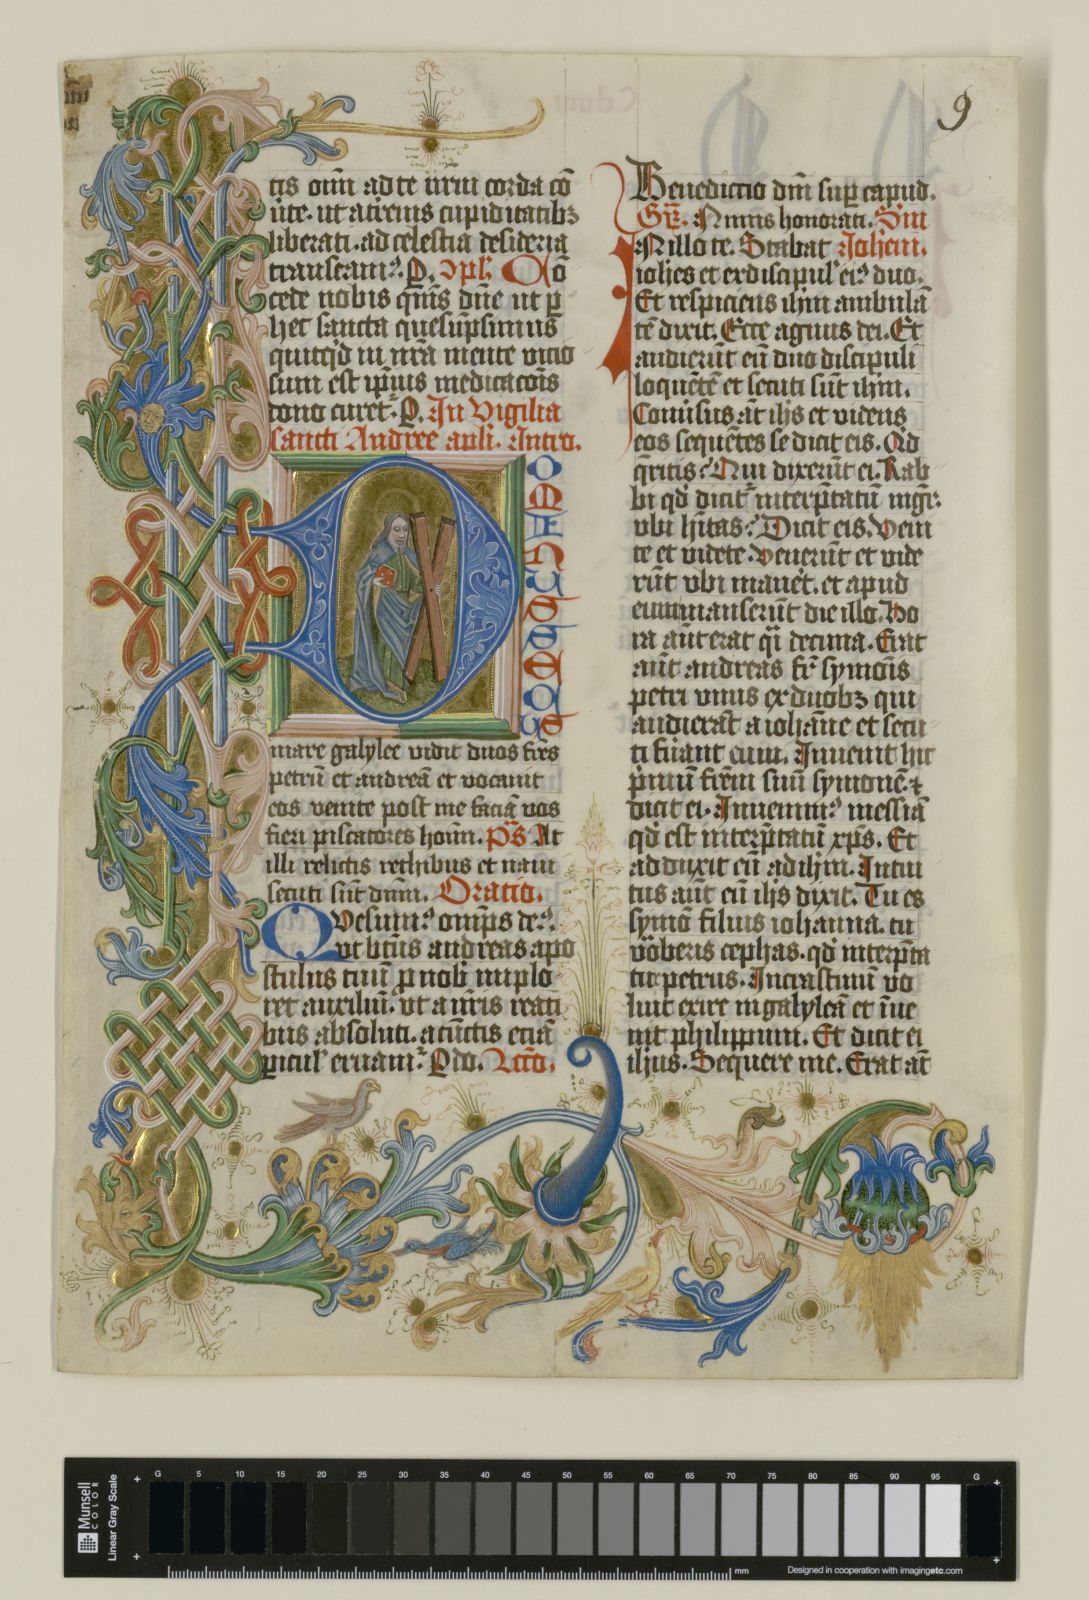 9
tis om̄ ad te n̄rm corda cō
ūte. ut a tirenis cupiditatibꝫ
liberati. ad celestia desideria
transeam⁹. Ꝑ. ɔpl. Cō
cede nobis quis dn̄e ut ꝑ
hec sancta que sūpsimus
quitqd̄ in nr̄a mente vicio
sum est ip̄ius medicacōis
dono curet̄. Ꝑ. In Vigilia
sancti Andree apl̄i. Intro.
DOMINUS SECUS
mare galylee vidit duos fr̄es
petrū et andreā et vocauit
eos venite post me faciā vos
fieri piscatores hoīm. p̄s At
illi relictis rethibus et naui
secuti sūt dn̄m. Oratio.
Qvesum⁹ omp̄s de⁹.
vt bt̄us andreas apo
stulus tuū ꝓ nob̄ implo
ret auxiliū. vt a n̄ris reati
bus absoluti. a cūctis eciā
ꝑicul̄ eruam̄. Ꝑ do. Lcc̄o.
Benedictio dn̄i suꝑ capud.
Gr̄. Nimis honorati. Sm̄
Nillo te. Stabat Iohem̄.
iohēs et ex discipul̄ ei⁹ duo.
Et respiciens ihm̄ ambulā
tē dixit. Ecce agnus dei. Et
audierūt eū duo discipuli
loquētē et secuti sūt ihm̄.
Conuisus āt ihs̄ et videns
eos sequētes se dicit eis. Qd
q̄ritis? Qui dixerūt ei. Rab
bi qd̄ dicit̄ interp̄tatū mgr̄.
vbi hītas? Dicit eis. Veni
te et videte. Venerūt et vide
rūt vbi manēt. et apud
eum manserūt die illo. Ho
ra aūt erat q̄i decima. Erat
aūt andreas fr̄ symōis
petri vnus ex duobꝫ qui
audierāt a iohāne et secu
ti fūant eum. Inuenit hic
p̄mū frēm suū symonē. ⁊
dicit ei. Inuenim⁹ messiā
qd̄ est interp̄tatū xp̄s. Et
adduxit eū ad ihm̄. Intui
tus aūt eū ihs̄ dixit. Tu es
symō filius iohanna. tu
vōberis cephas. qd̄ interp̄ta
tur petrus. Incrastinū vo
luit exire in galyleā et īue
nit philippum. Et dicit ei
ihus. Sequere me. Erat āt
Munsell
COLOR
Linear Gray Scale
G 5 10 15 20 25 30 35 40 45 50 55 60 65 70 75 80 85 90 95 G
mm
Designed in cooperation with imagingetc.com